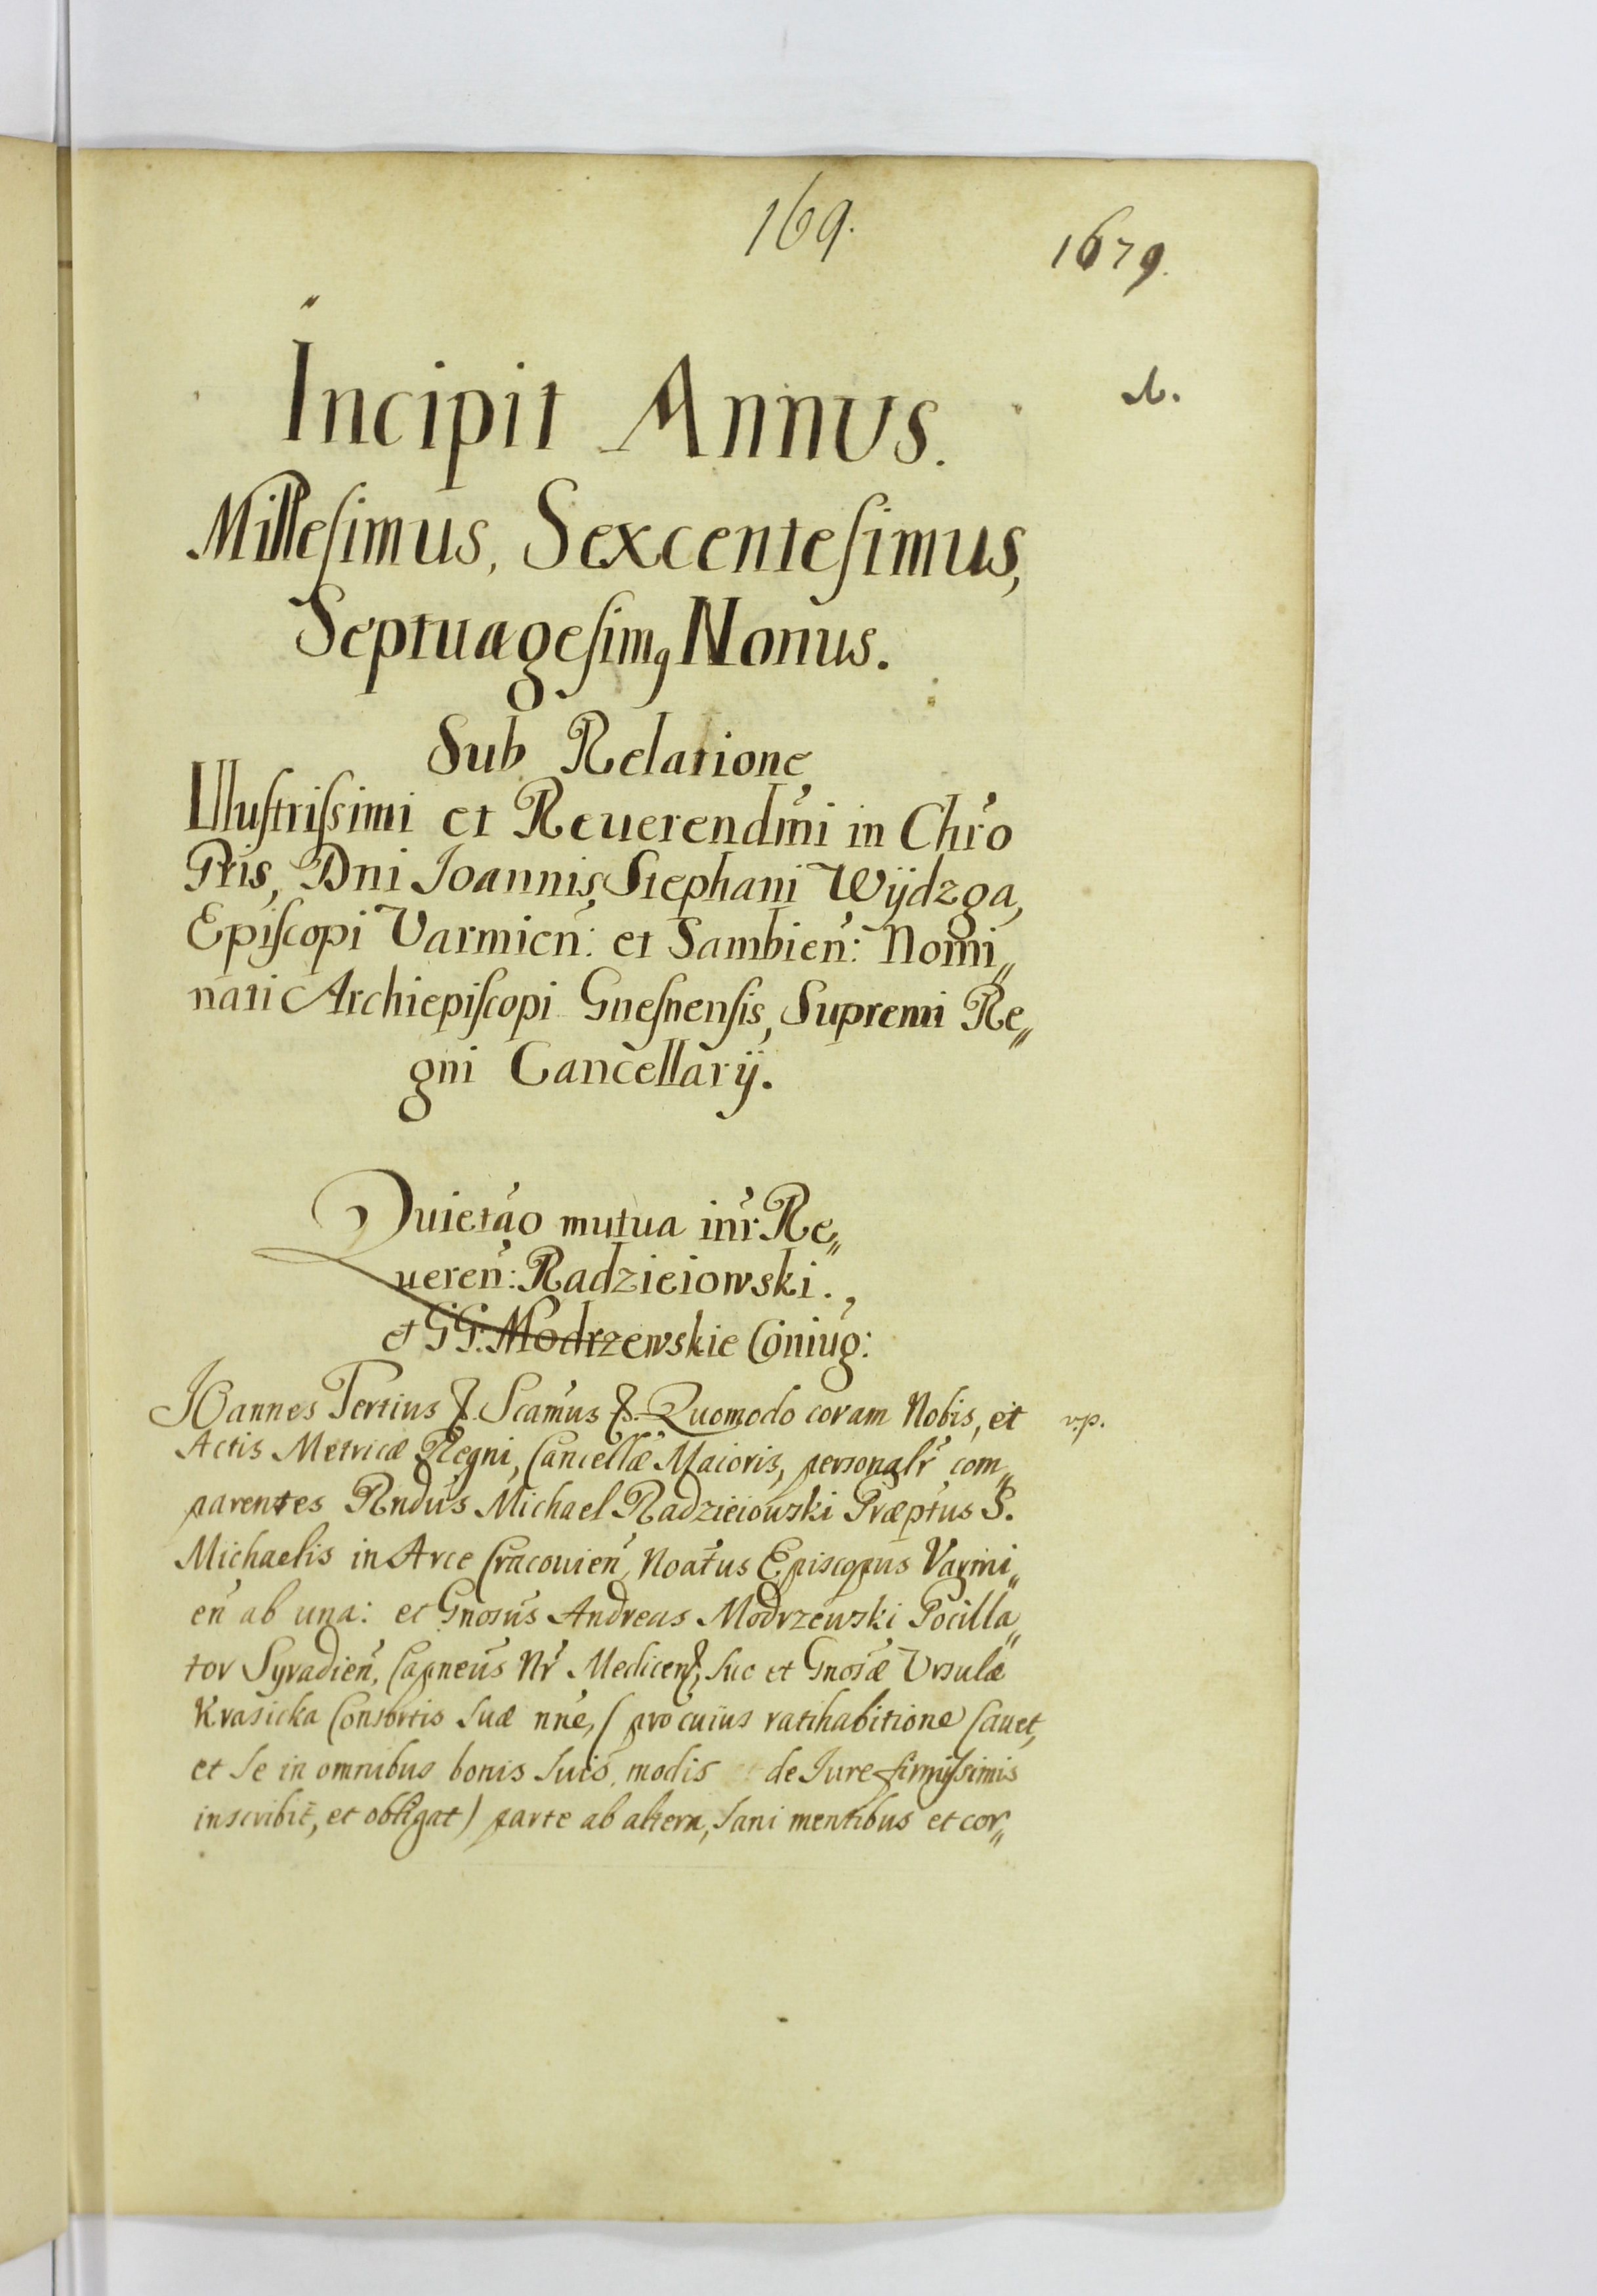 169.
1679.
Incipit Annus.
Millesimus, Sexcentesimus,
Septuagesimꝯ Nonus.
Sub Relatione
Illustrissimi et Reuerendmi in Chro
Pris, Dni Joannis Stephani Wÿdzga,
Episcopi Varmien: et Sambien: Nomi„
nati Archiepiscopi Gnesnensis, Supremi Re„
gni Cancellarÿ.
Quietao mutua intr Re„
ueren: Radzieiowski.,
et GG: Modrzewskie Coniug:
JOannes Tertius &. Scamus &. Quomodo coram Nobis, et
v.p.
Actis Metricæ Regni, Cancellæ Maioris, personalr com„
parentes Rndus Michael Radzieiowski Præptus S.
Michaelis in Arce Cracouien, Noatus Episcopus Varmi„
en ab una: et Gnosus Andreas Modrzewski Pocilla„
tor Syradien, Capneus Nr Medicen, suo et Gnosæ Vrsulæ
Krasicka Consortis suæ nne, (pro cuius ratihabitione cauet,
et se in omnibus bonis suis, modis de Iure firmissimis
inscribit, et obligat) parte ab altera, sani mentibus et cor„